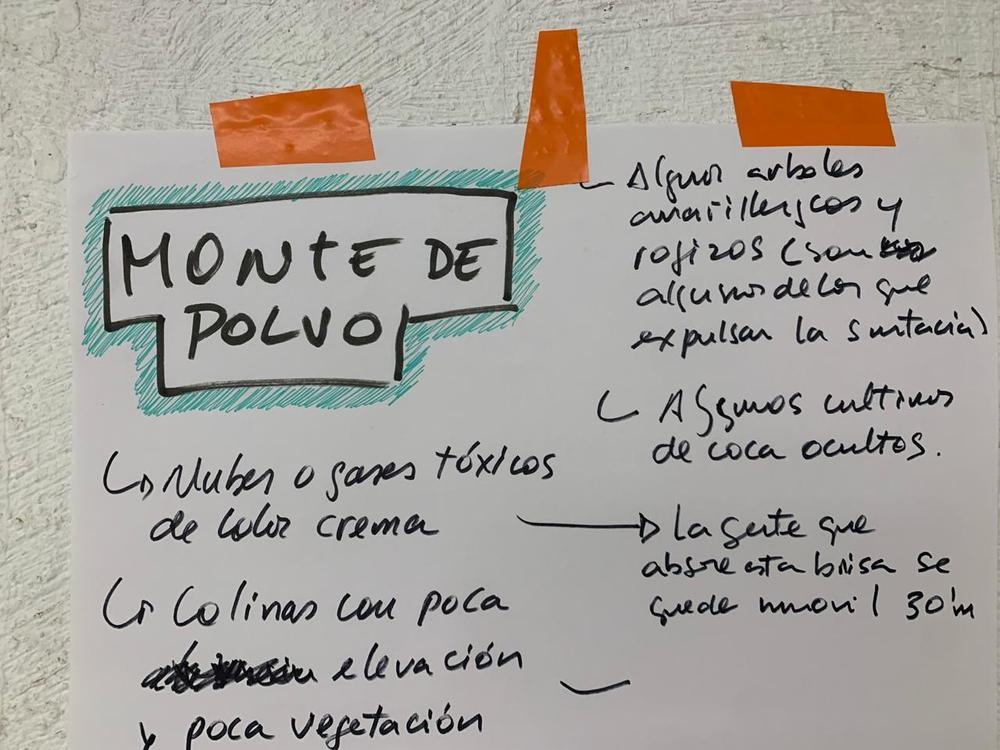 MONTE DE
POLVO
Nubes o gases tóxicos
de color crema
Colinas con poca
elevación
y poca vegetación
Algunos arboles
amarillengcos y
rojizos (son
algunos de los que
expulsan la sustacia)
Algunos cultivos
de coca ocultos.
La gente que
absore esta brisa se
quede inmovil 30'm